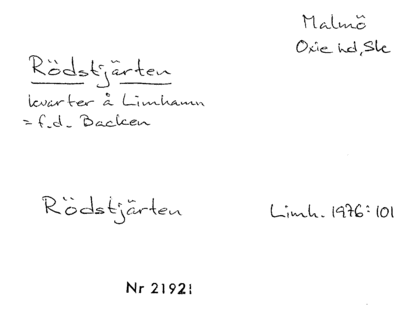 Malmö
Oxie hd, Sk
Rödstjärten
kvarter å Limhamn
= f.d. Backen
Rödstjärten
Limh. 1976:101
Nr 21921